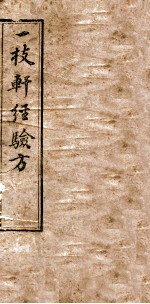 一枝軒經驗方